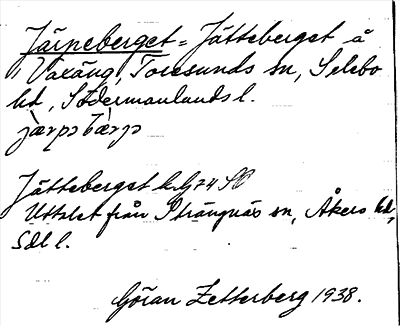 Järneberget = Jätteberget å
Vaxäng, Toresunds sn, Selebo
hd, Södermanlands l.
jærpə bærjə
Jätteberget
Uttalet från Strängnäs sn, Åkers hd,
Sdl l.
Göran Zetterberg 1938.